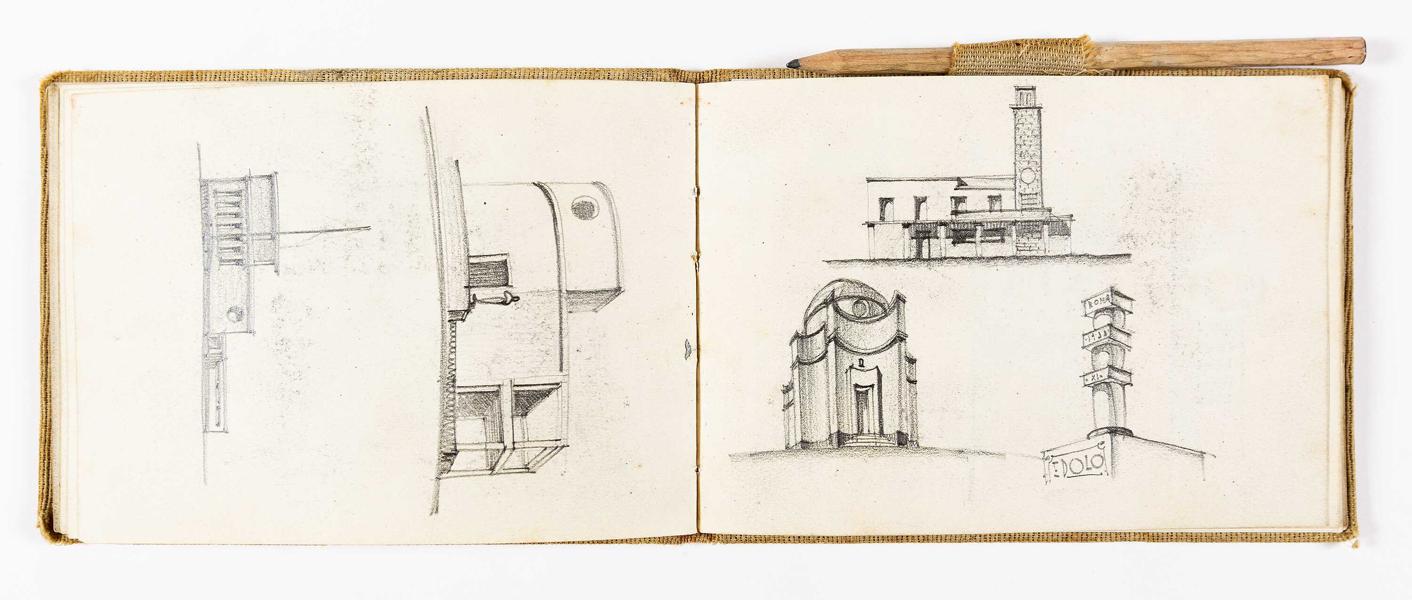 ROMA
1933
XI
EDOLO